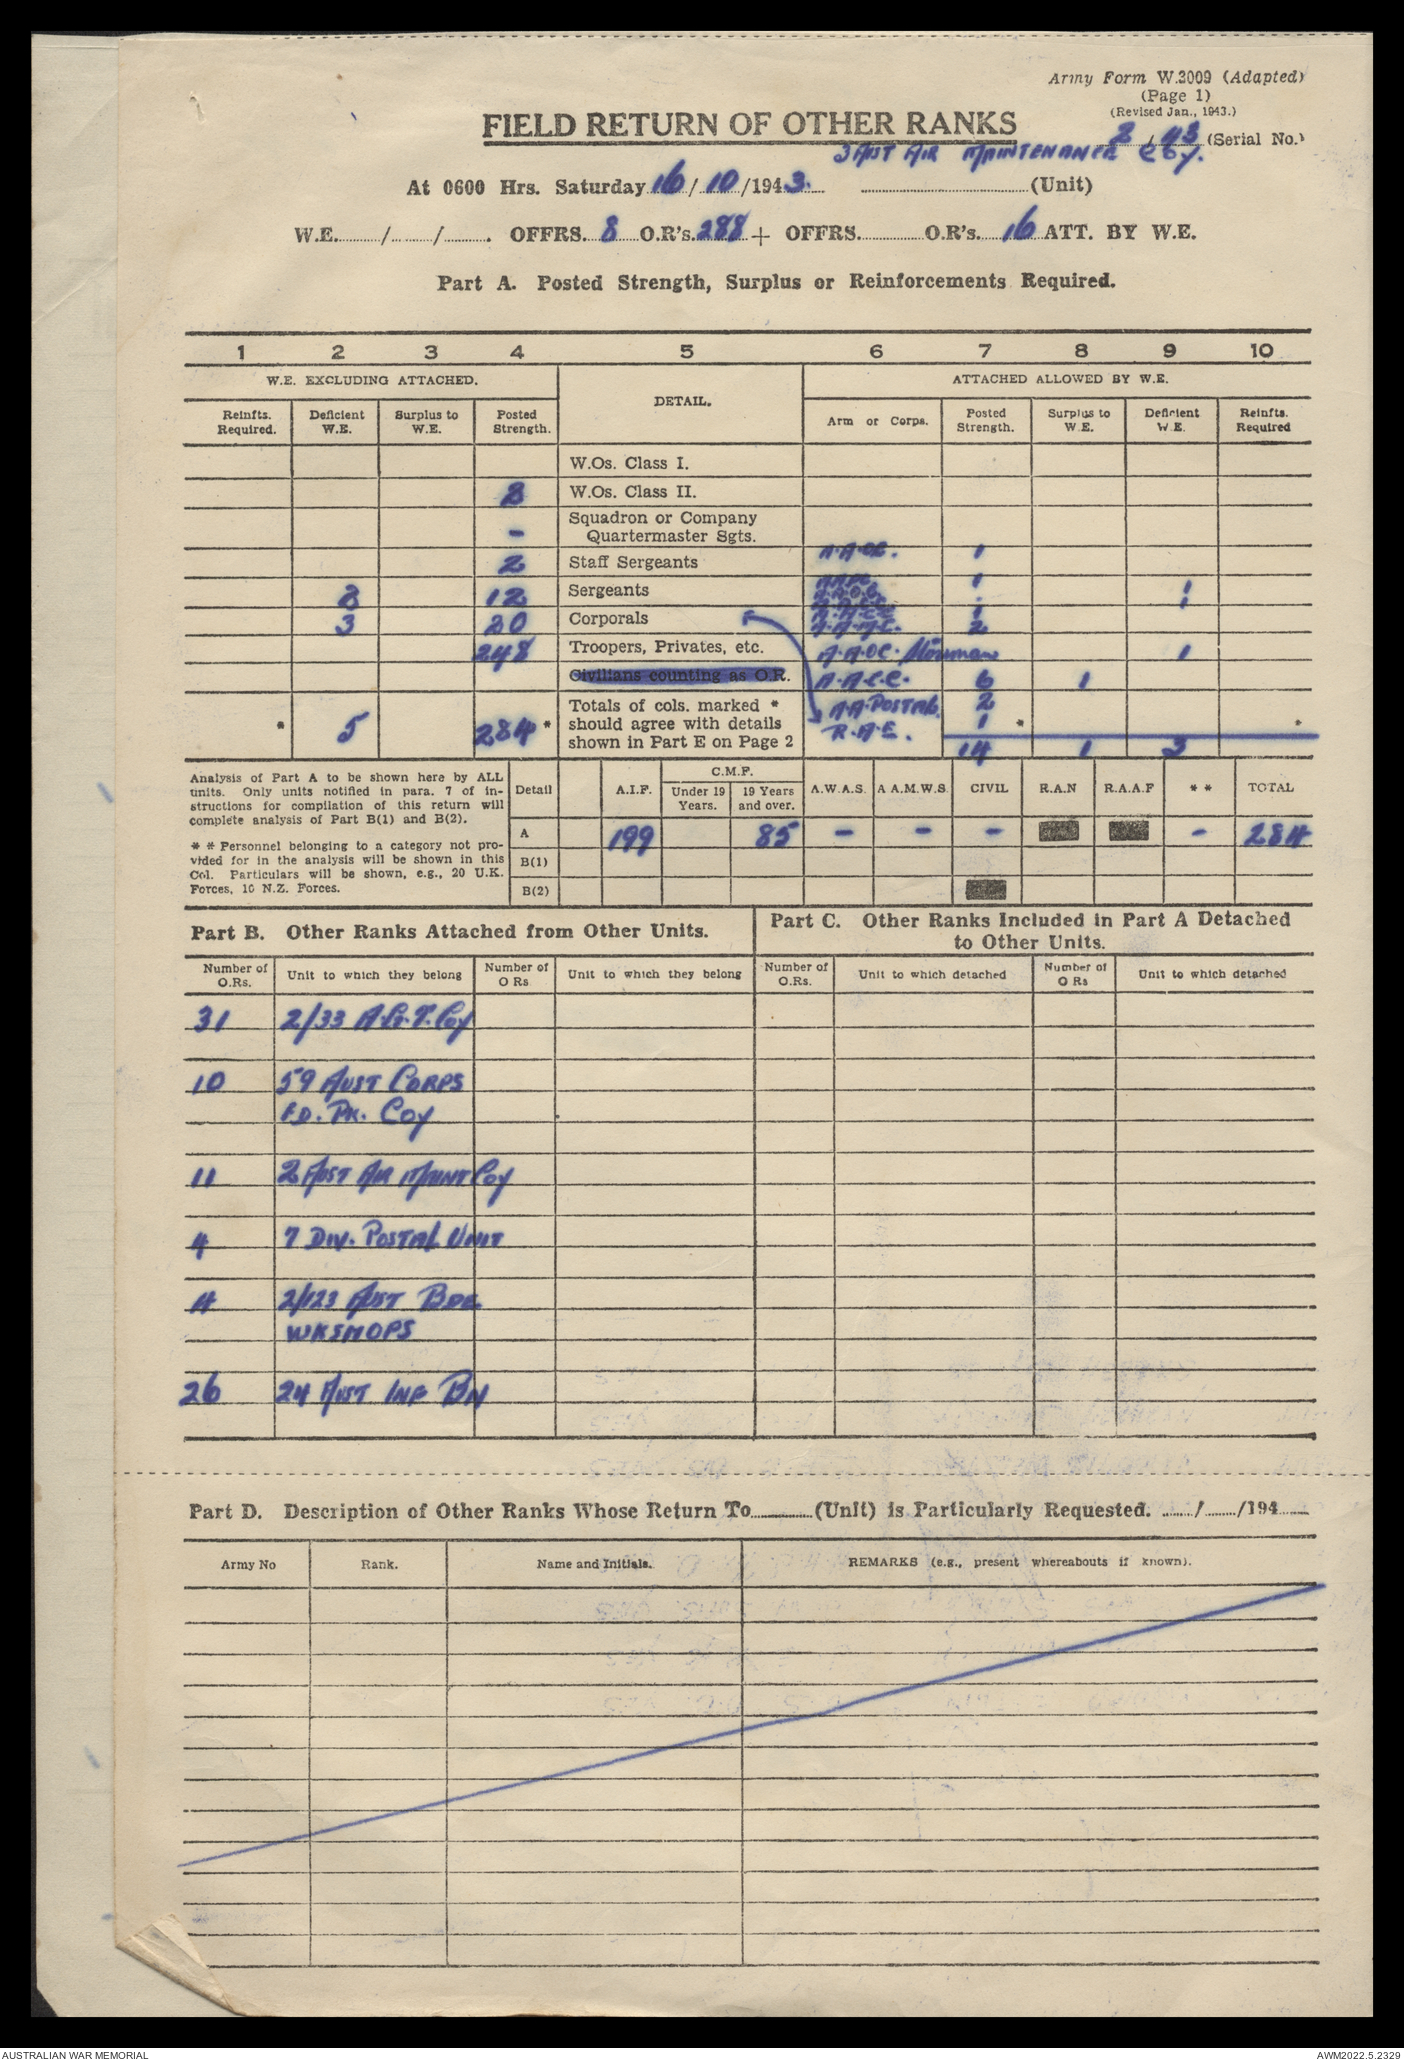 Army Form W.3009 (Adapted)
(Page 1)
(Revised Jan., 1943.)
FIELD RETURN OF OTHER RANKS
2 / 43 (Serial No.)
3 AUST AIR MAINTENANCE COY.
At 0600 Hrs. Saturday 16 / 10 /1943. (Unit)
W.E. / / . OFFRS. 8 O.R's. 288 + OFFRS. O.R's. 16 ATT. BY W.E.
Part A. Posted Strength, Surplus or Reinforcements Required.
1 2 3 4 5 6 7 8 9 10
W.E. EXCLUDING ATTACHED. DETAIL. ATTACHED ALLOWED BY W.E.
Reinfts. Required. Deficient W.E. Surplus to W.E. Posted Strength. Arm or Corps. Posted Strength. Surplus to W.E. Deficient W.E. Reinfts. Required
W.Os. Class I.
2 W.Os. Class II.
- Squadron or Company
Quartermaster Sgts.
2 Staff Sergeants A.A.OC. 1
2 12 Sergeants 1 1
3 20 Corporals 1
A.A.M.C. 2
248 Troopers, Privates, etc. A.A.OC. 1
Civilians counting as O.R. A.A.C.C. 6 1
Totals of cols. marked * A.A. POSTAL 2
* 5 284 * should agree with details R.A.E. 1 * *
shown in Part E on Page 2 14 1 3
Analysis of Part A to be shown here by ALL
units. Only units notified in para. 7 of in-
structions for compilation of this return will
complete analysis of Part B(1) and B(2).
* * Personnel belonging to a category not pro-
vided for in the analysis will be shown in this
Col. Particulars will be shown, e.g., 20 U.K.
Forces, 10 N.Z. Forces.
C.M.F.
Detail A.I.F. Under 19 Years. 19 Years and over. A.W.A.S. A A.M.W.S. CIVIL R.A.N R.A.A.F * * TOTAL
A 199 85 - - - - 284
B(1)
B(2)
Part B. Other Ranks Attached from Other Units.
Part C. Other Ranks Included in Part A Detached
to Other Units.
Number of O.Rs. Unit to which they belong Number of O Rs Unit to which they belong Number of O.Rs. Unit to which detached Number of O Rs Unit to which detached
31 2/33 A.G.T. Coy
10 59 AUST CORPS
FD. PK. COY
11 2 AUST AIR MAINT Coy
4 7 DIV. POSTAL UNIT
4 2/123 AUST BDE
WKSHOPS
26 24 AUST INF BN
Part D. Description of Other Ranks Whose Return To (Unit) is Particularly Requested. / /194
Army No Rank. Name and Initials. REMARKS (e.g., present whereabouts if known).
AUSTRALIAN WAR MEMORIAL AWM2022.5.2329